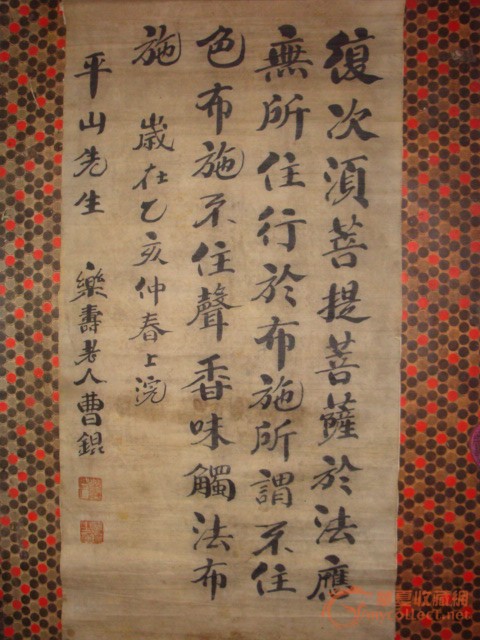 復次須菩提菩薩於法應
無所住行於布施所謂不住
色布施不住聲香味觸法布
施
歲在乙亥仲春上浣
平山先生
樂壽老人曹錕
收藏網
ollect.net